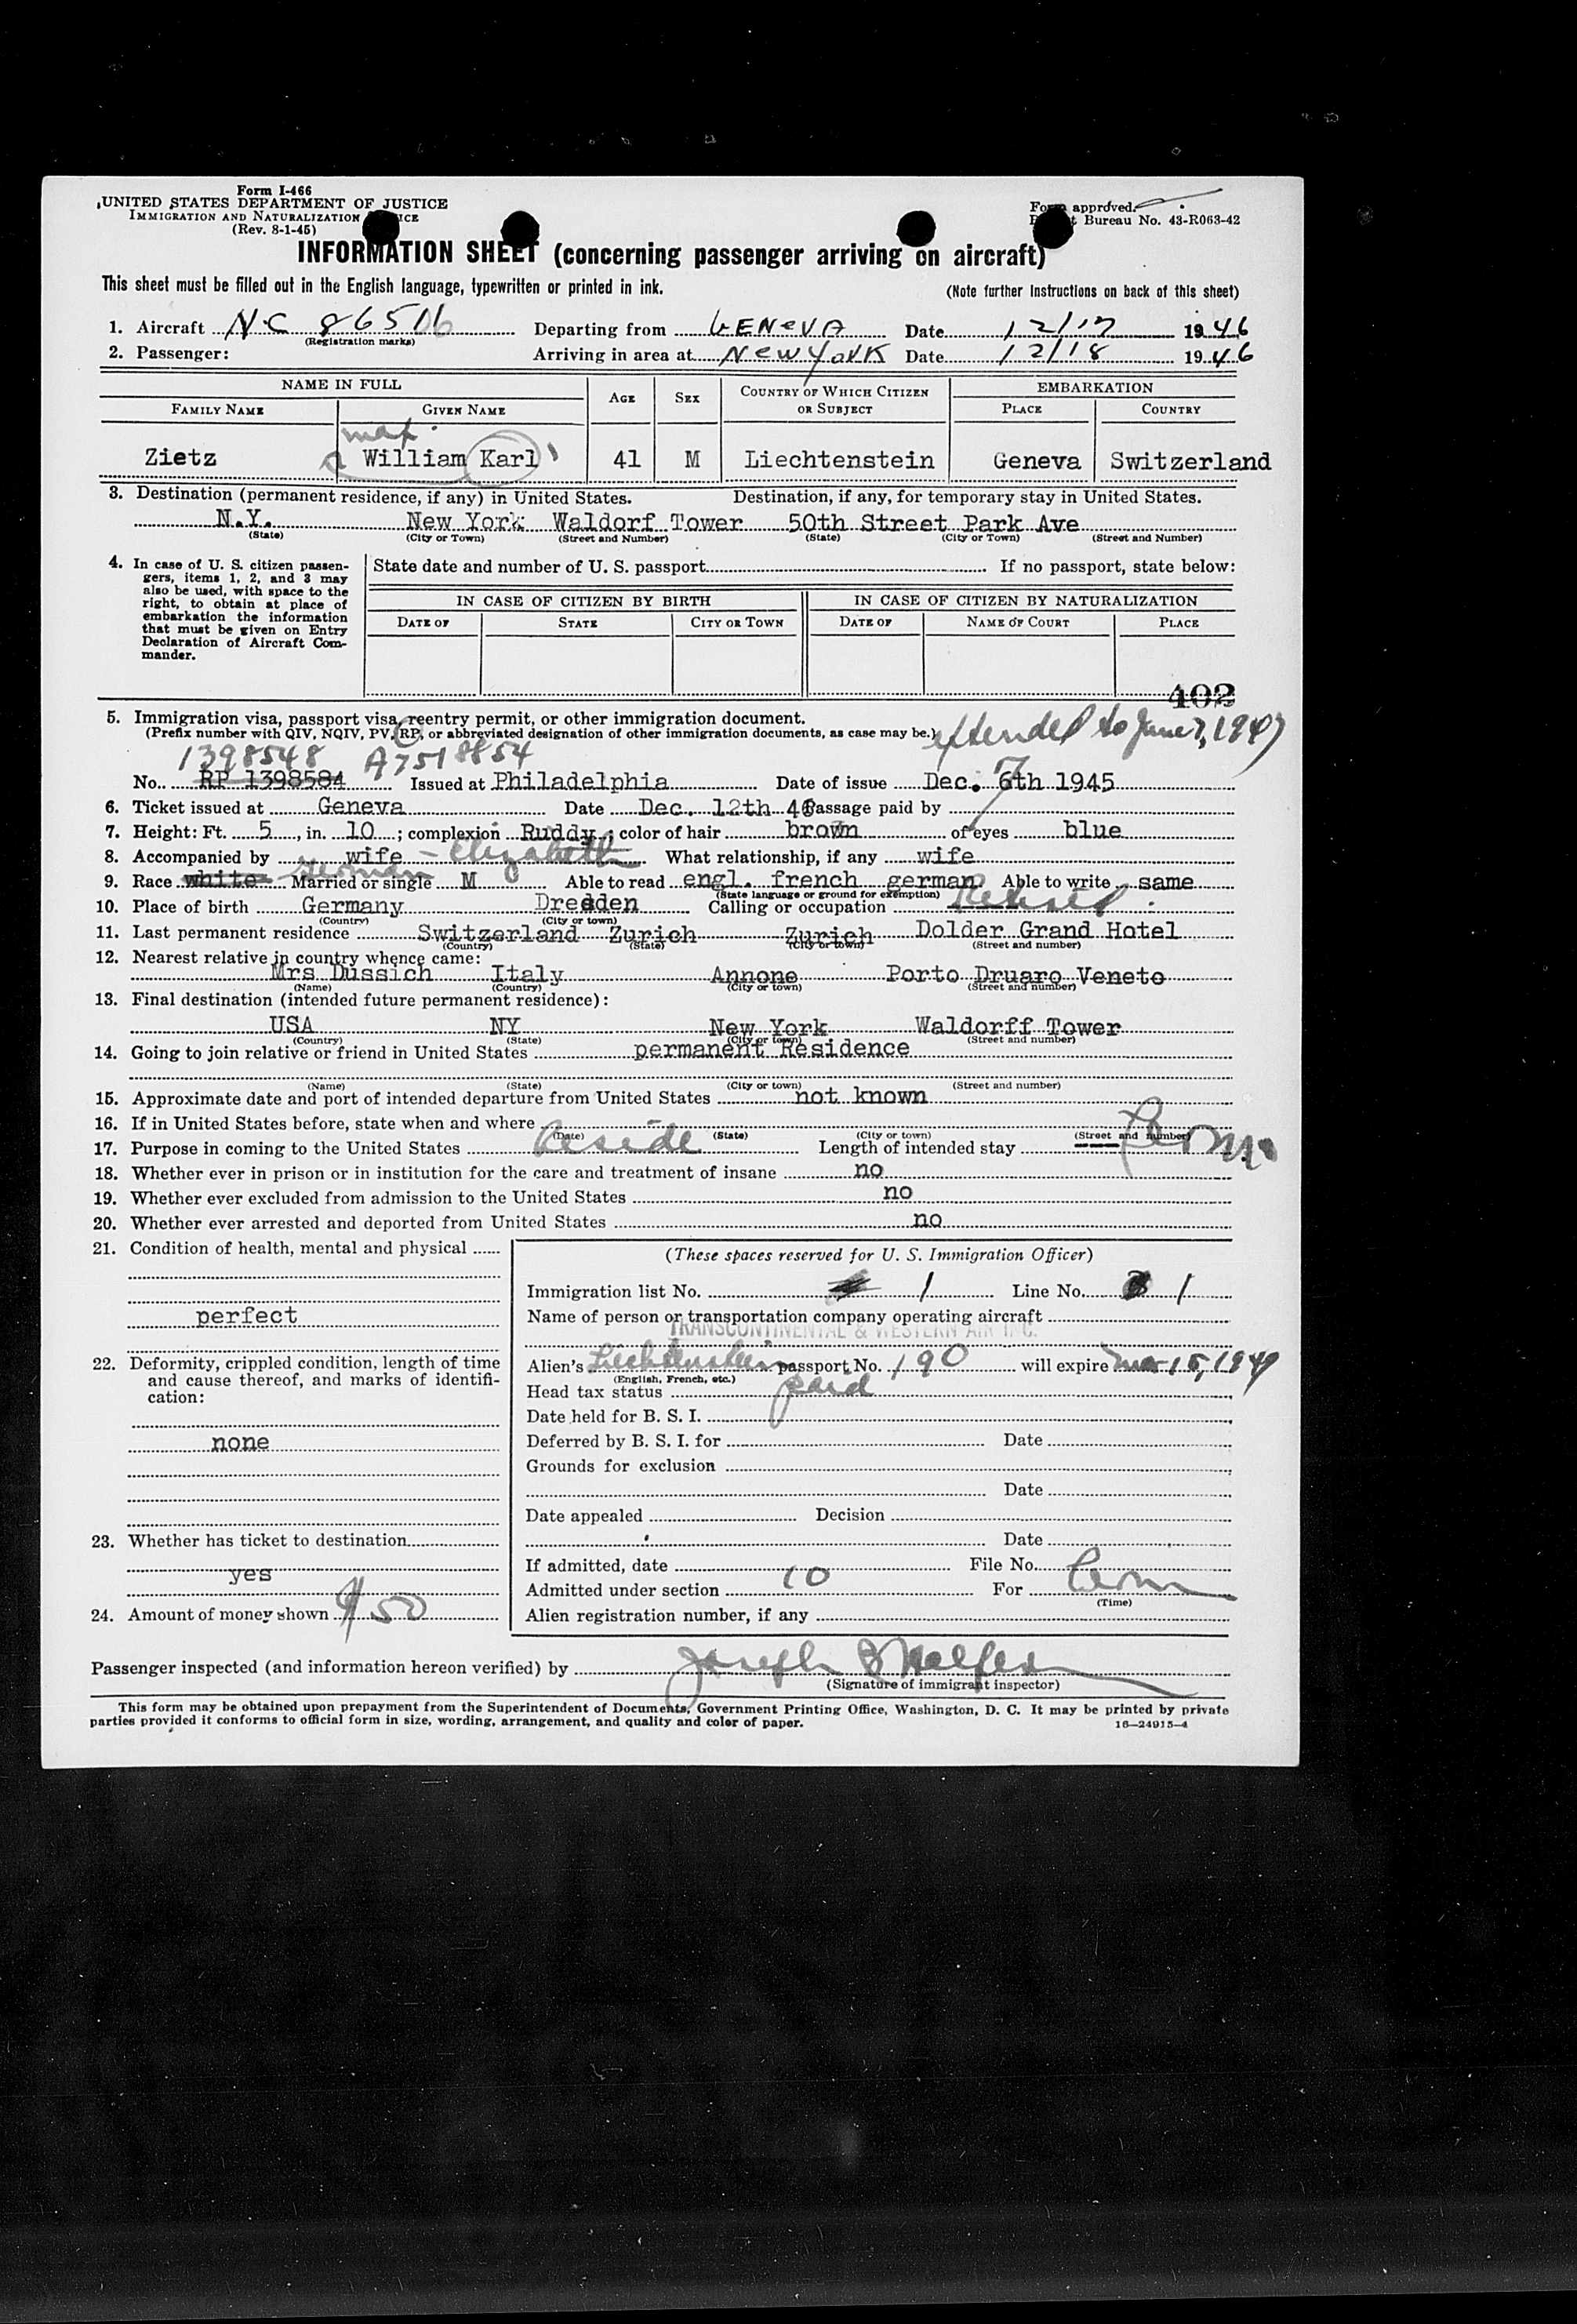 Form I-466
UNITED STATES DEPARTMENT OF JUSTICE
IMMIGRATION AND NATURALIZATION
(Rev. 8-1-45)
Form approved.
Bureau No. 43-R063-42
INFORMATION SHEET (concerning passenger arriving on aircraft)
This sheet must be filled out in the English language, typewritten or printed in ink.
(Note further instructions on back of this sheet)
1. Aircraft NC 86516 Departing from GENEVA Date 12/17 1946
(Registration marks)
2. Passenger: Arriving in area at New York Date 12/18 1946
NAME IN FULL AGE SEX COUNTRY OF WHICH CITIZEN OR SUBJECT EMBARKATION
FAMILY NAME GIVEN NAME PLACE COUNTRY
max
Zietz William Karl 41 M Liechtenstein Geneva Switzerland
3. Destination (permanent residence, if any) in United States. Destination, if any, for temporary stay in United States.
N.Y. New York Waldorf Tower 50th Street Park Ave
(State) (City or Town) (Street and Number) (State) (City or Town) (Street and Number)
4. In case of U. S. citizen passengers, items 1, 2, and 3 may also be used, with space to the right, to obtain at place of embarkation the information that must be given on Entry Declaration of Aircraft Commander.
State date and number of U. S. passport If no passport, state below:
IN CASE OF CITIZEN BY BIRTH IN CASE OF CITIZEN BY NATURALIZATION
DATE OF STATE CITY OR TOWN DATE OF NAME OF COURT PLACE
402
5. Immigration visa, passport visa, reentry permit, or other immigration document.
(Prefix number with QIV, NQIV, PV, RP, or abbreviated designation of other immigration documents, as case may be.) extended to June 7, 1947
1398548 A7518854
No. RP 1398584 Issued at Philadelphia Date of issue Dec. 6th 1945
7
6. Ticket issued at Geneva Date Dec. 12th 46 Passage paid by
7. Height: Ft. 5, in. 10; complexion Ruddy; color of hair brown of eyes blue
8. Accompanied by wife - Elizabeth What relationship, if any wife
9. Race white German Married or single M Able to read engl. french german Able to write same
(State language or ground for exemption)
10. Place of birth Germany Dresden Calling or occupation Retired
(Country) (City or town)
11. Last permanent residence Switzerland Zurich Zurich Dolder Grand Hotel
(Country) (State) (City or town) (Street and number)
12. Nearest relative in country whence came:
Mrs Dussich Italy Annone Porto Druaro Veneto
(Name) (Country) (City or town) (Street and number)
13. Final destination (intended future permanent residence):
USA NY New York Waldorff Tower
(Country) (State) (City or town) (Street and number)
14. Going to join relative or friend in United States permanent Residence
(Name) (State) (City or town) (Street and number)
15. Approximate date and port of intended departure from United States not known
16. If in United States before, state when and where
(Date) (State) (City or town) (Street and number)
17. Purpose in coming to the United States Reside Length of intended stay Perm
18. Whether ever in prison or in institution for the care and treatment of insane no
19. Whether ever excluded from admission to the United States no
20. Whether ever arrested and deported from United States no
21. Condition of health, mental and physical
perfect
22. Deformity, crippled condition, length of time and cause thereof, and marks of identification:
none
23. Whether has ticket to destination
yes
24. Amount of money shown $50
(These spaces reserved for U. S. Immigration Officer)
Immigration list No. 1 Line No. 1
Name of person or transportation company operating aircraft
TRANSCONTINENTAL & WESTERN AIR INC.
Alien's Liechtenstein passport No. 190 will expire Mar 15, 1949
(English, French, etc.)
Head tax status paid
Date held for B. S. I.
Deferred by B. S. I. for Date
Grounds for exclusion
Date
Date appealed Decision
Date
If admitted, date File No.
Admitted under section 10 For Perm
(Time)
Alien registration number, if any
Passenger inspected (and information hereon verified) by Joseph
(Signature of immigrant inspector)
This form may be obtained upon prepayment from the Superintendent of Documents, Government Printing Office, Washington, D. C. It may be printed by private
parties provided it conforms to official form in size, wording, arrangement, and quality and color of paper. 16—24915-4